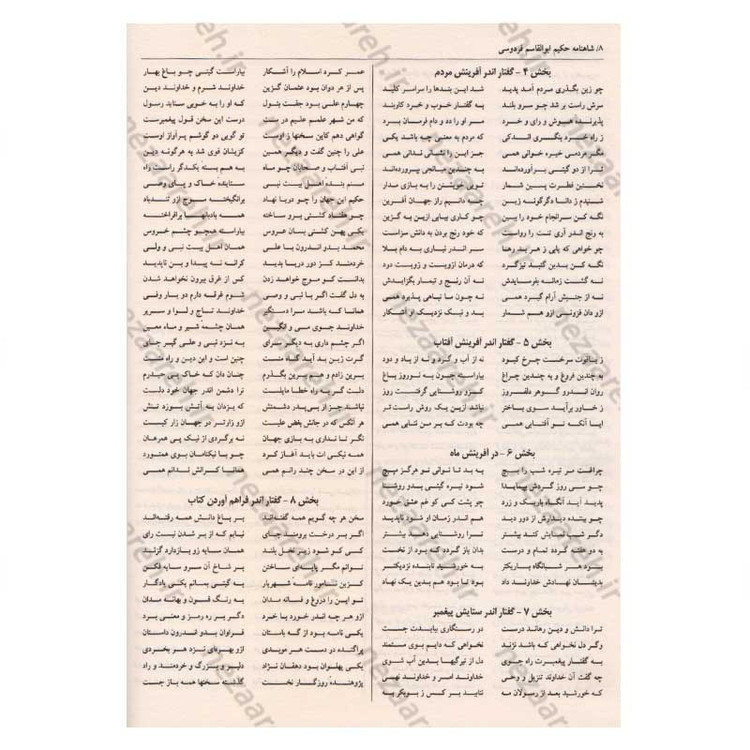 ۸/ شاهنامه حکیم ابوالقاسم فردوسی
بخش ۴ - گفتار اندر آفرینش مردم
چو زین بگذری مردم آمد پدید شد این بندها را سراسر کلید
سرش راست بر شد چو سرو بلند به گفتار خوب و خرد کاربند
پذیرنده هوش و رای و خرد مر او را دد و دام فرمان برد
ز راه خرد بنگری اندکی که مردم به معنی چه باشد یکی
مگر مردمی خیره خوانی همی جز این را نشانی ندانی همی
ترا از دو گیتی برآورده‌اند به چندین میانجی بپرورده‌اند
نخستین فطرت پسین شمار تویی خویشتن را به بازی مدار
شنیدم ز دانا دگرگونه زین چه دانیم راز جهان آفرین
نگه کن سرانجام خود را ببین چو کاری بیابی ازین به گزین
به رنج اندر آری تنت را رواست که خود رنج بردن به دانش سزاست
چو خواهی که یابی ز هر بد رها سر اندر نیاری به دام بلا
نگه کن بدین گنبد تیزگرد که درمان ازویست و زویست درد
نه گشت زمانه بفرسایدش نه آن رنج و تیمار بگزایدش
نه از جنبش آرام گیرد همی نه چون ما تباهی پذیرد همی
ازو دان فزونی ازو هم شمار بد و نیک نزدیک او آشکار
بخش ۵ - گفتار اندر آفرینش آفتاب
ز یاقوت سرخست چرخ کبود نه از آب و گرد و نه از باد و دود
به چندین فروغ و به چندین چراغ بیاراسته چون به نوروز باغ
روان اندرو گوهر دلفروز کزو روشنایی گرفتست روز
ز خاور برآید سوی باختر نباشد ازین یک روش راست‌تر
ایا آنکه تو آفتابی همی چه بودت که بر من نتابی همی
بخش ۶ - در آفرینش ماه
چراغست مر تیره شب را بسیچ به بد تا توانی تو هرگز مپیچ
چو سی روز گردش بپیمایدا شود تیره گیتی بدو روشنا
پدید آید آنگاه باریک و زرد چو پشت کسی کو غم عشق خورد
چو بیننده دیدارش از دور دید هم اندر زمان او شود ناپدید
دگر شب نمایش کند بیشتر ترا روشنایی دهد بیشتر
به دو هفته گردد تمام و درست بدان باز گردد که بود از نخست
بود هر شبانگاه باریکتر به خورشید تابنده نزدیکتر
بدینسان نهادش خداوند داد بود تا بود هم بدین یک نهاد
بخش ۷ - گفتار اندر ستایش پیغمبر
ترا دانش و دین رهاند درست در رستگاری ببایدت جست
وگر دل نخواهی که باشد نژند نخواهی که دایم بوی مستمند
به گفتار پیغمبرت راه جوی دل از تیرگیها بدین آب شوی
چه گفت آن خداوند تنزیل و وحی خداوند امر و خداوند نهی
که خورشید بعد از رسولان مه نتابید بر کس ز بوبکر به
عمر کرد اسلام را آشکار بیاراست گیتی چو باغ بهار
پس از هر دوان بود عثمان گزین خداوند شرم و خداوند دین
چهارم علی بود جفت بتول که او را به خوبی ستاید رسول
که من شهر علمم علیم در ست درست این سخن قول پیغمبرست
گواهی دهم کاین سخنها ز اوست تو گویی دو گوشم پرآواز اوست
علی را چنین گفت و دیگر همین کزیشان قوی شد به هرگونه دین
نبی آفتاب و صحابان چو ماه به هم بسته یکدگر راست راه
منم بنده اهل بیت نبی ستاینده خاک و پای وصی
حکیم این جهان را چو دریا نهاد برانگیخته موج ازو تندباد
چو هفتاد کشتی برو ساخته همه بادبانها برافراخته
یکی پهن کشتی بسان عروس بیاراسته همچو چشم خروس
محمد بدو اندرون با علی همان اهل بیت نبی و ولی
خردمند کز دور دریا بدید کرانه نه پیدا و بن ناپدید
بدانست کو موج خواهد زدن کس از غرق بیرون نخواهد شدن
به دل گفت اگر با نبی و وصی شوم غرقه دارم دو یار وفی
همانا که باشد مرا دستگیر خداوند تاج و لوا و سریر
خداوند جوی می و انگبین همان چشمه شیر و ماء معین
اگر چشم داری به دیگر سرای به نزد نبی و علی گیر جای
گرت زین بد آید گناه منست چنین است و این دین و راه منست
برین زادم و هم برین بگذرم چنان دان که خاک پی حیدرم
دلت گر به راه خطا مایلست ترا دشمن اندر جهان خود دلست
نباشد جز از بی‌پدر دشمنش که یزدان به آتش بسوزد تنش
هر آنکس که در جانش بغض علیست ازو زارتر در جهان زار کیست
نگر تا نداری به بازی جهان نه برگردی از نیک پی همرهان
همه نیکی ات باید آغاز کرد چو با نیکنامان بوی همنورد
از این در سخن چند رانم همی همانا کرانش ندانم همی
بخش ۸ - گفتار اندر فراهم آوردن کتاب
سخن هر چه گویم همه گفته‌اند بر باغ دانش همه رفته‌اند
اگر بر درخت برومند جای نیابم که از بر شدن نیست رای
کسی کو شود زیر نخل بلند همان سایه زو بازدارد گزند
توانم مگر پایه‌ای ساختن بر شاخ آن سرو سایه فکن
کزین نامور نامه شهریار به گیتی بمانم یکی یادگار
تو این را دروغ و فسانه مدان به رنگ فسون و بهانه مدان
ازو هر چه اندر خورد با خرد دگر بر ره رمز و معنی برد
یکی نامه بود از گه باستان فراوان بدو اندرون داستان
پراگنده در دست هر موبدی ازو بهره‌ای نزد هر بخردی
یکی پهلوان بود دهقان نژاد دلیر و بزرگ و خردمند و راد
پژوهنده روزگار نخست گذشته سخنها همه باز جست
nezaareh.ir